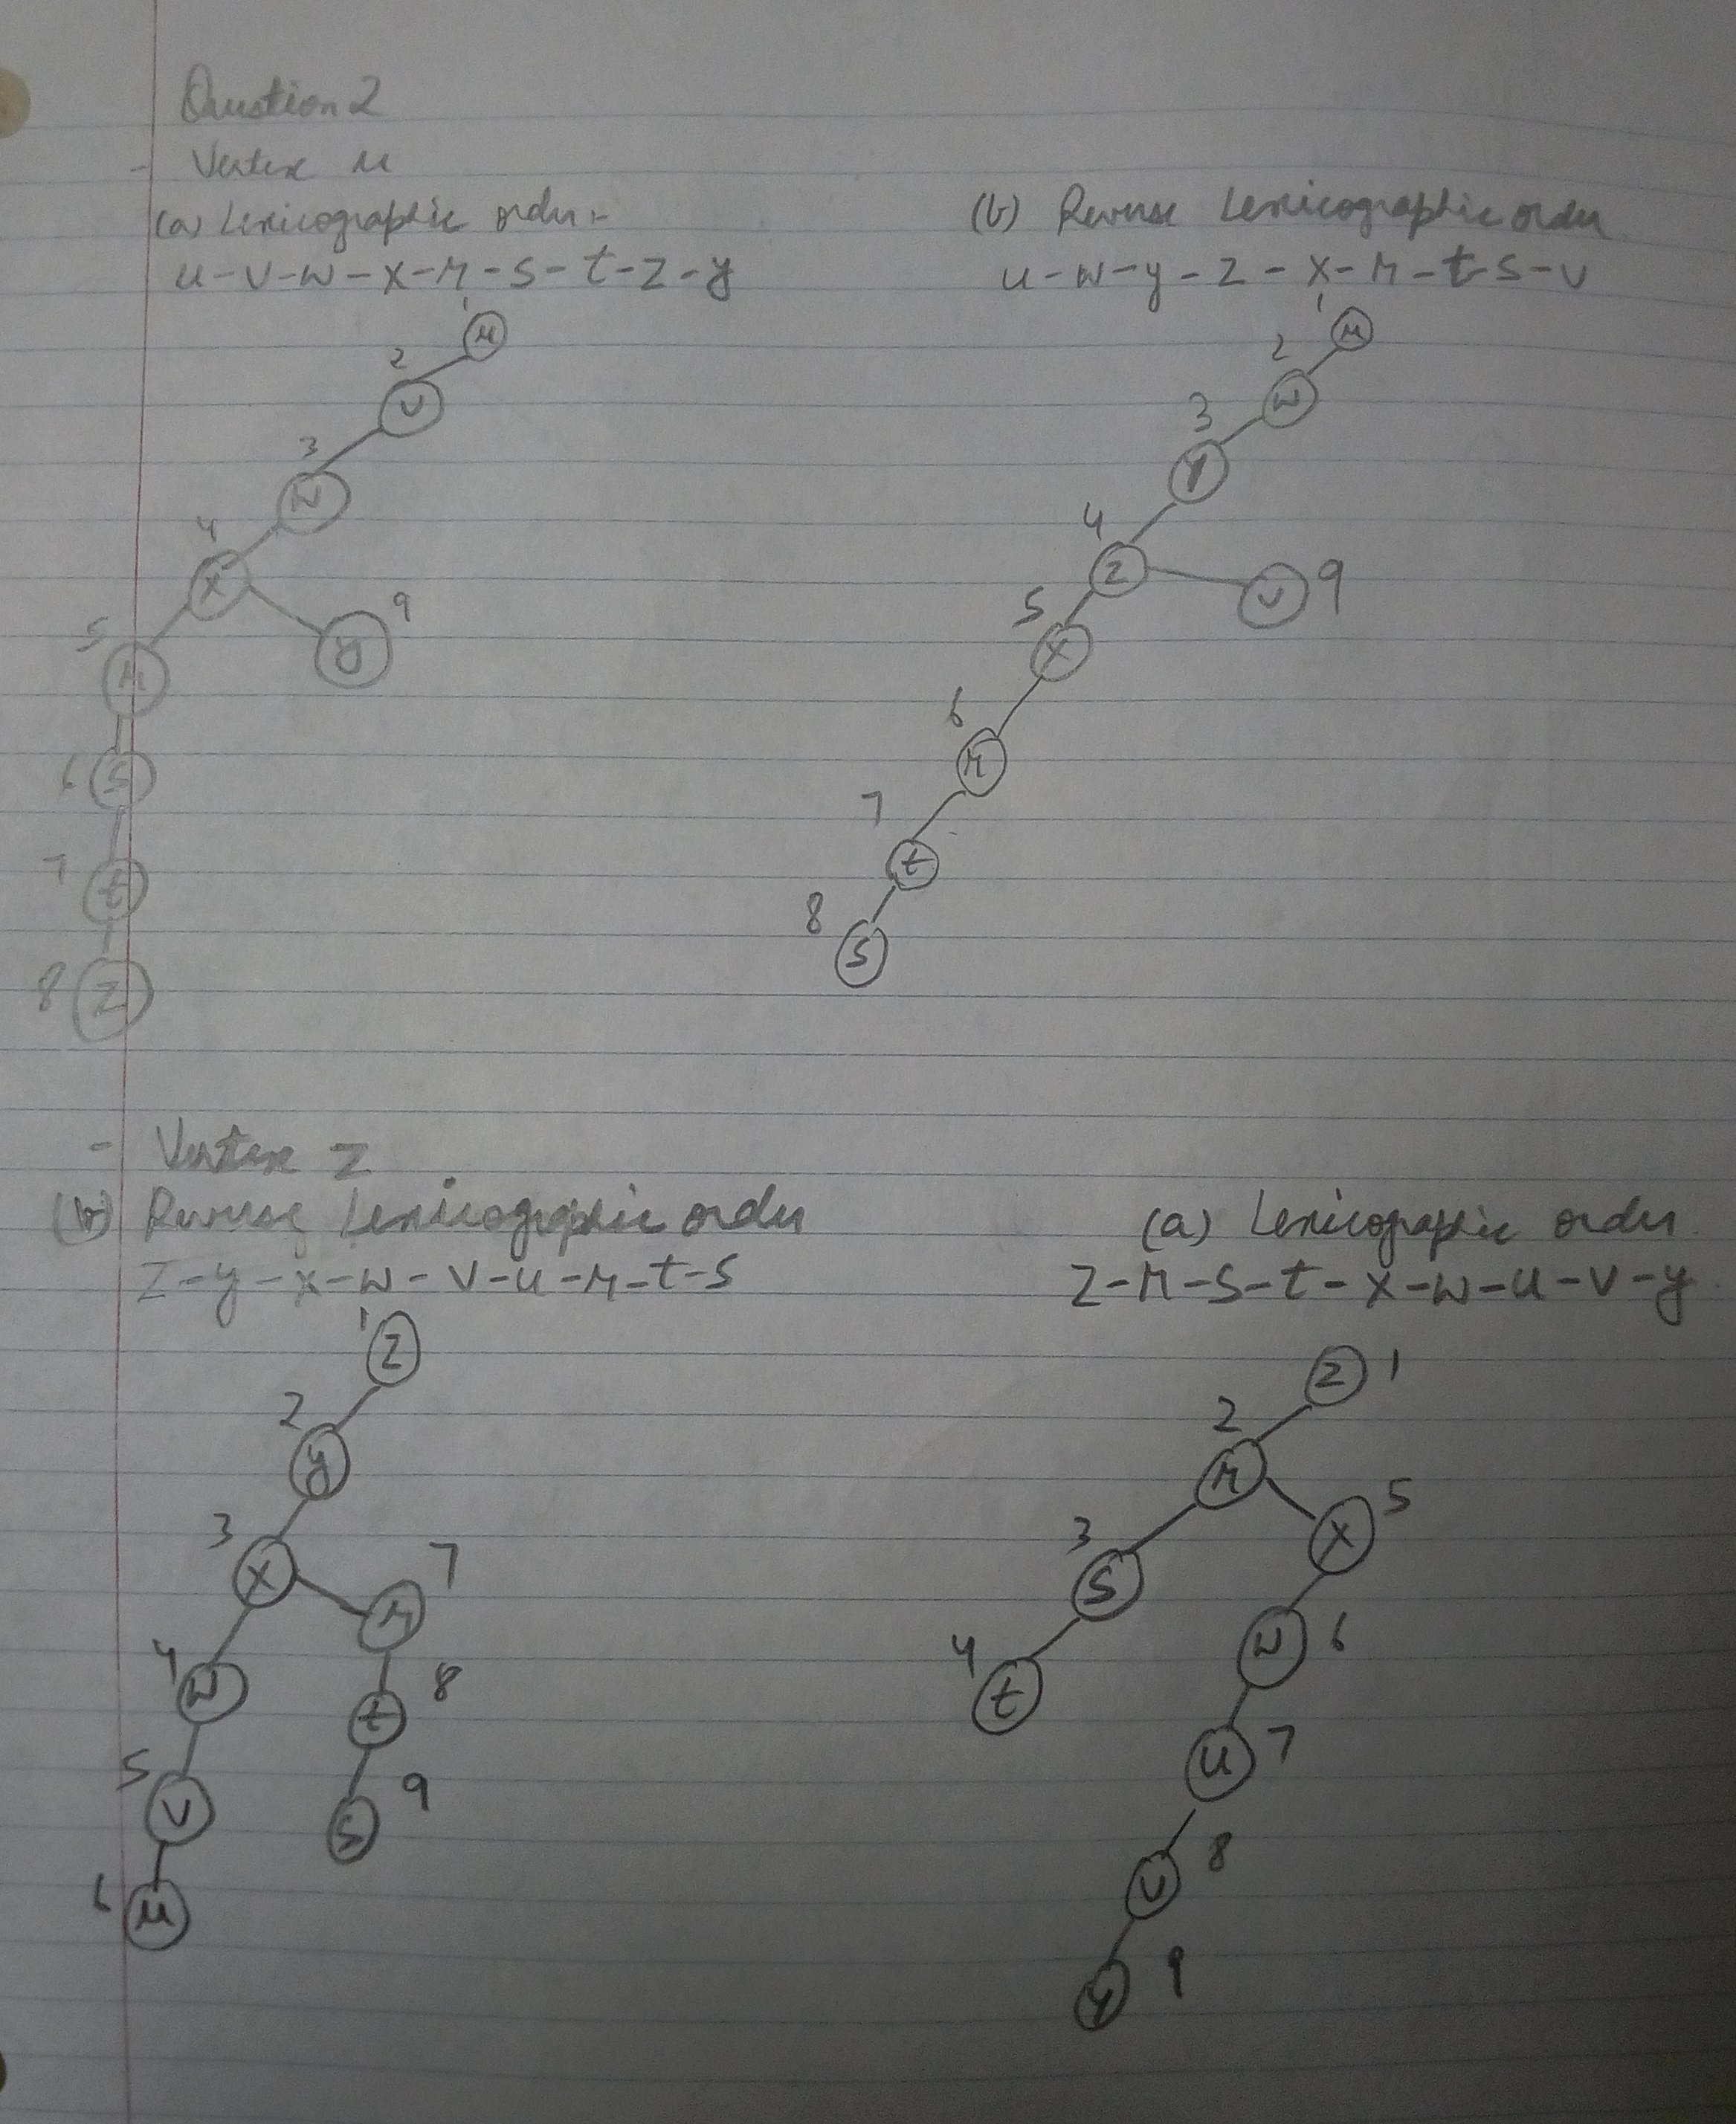 Question 2
- Vertex u
(a) Lexicographic order :-
u-v-w-x-r-s-t-z-y
1 u
2 v
3 w
4 x
9 y
5 r
6 s
7 t
8 z
(b) Reverse Lexicographic order
u-w-y-z-x-r-t-s-v
1 u
2 w
3 y
4 z
v 9
5 x
6 r
7 t
8 s
- Vertex z
(b) Reverse Lexicographic order
z-y-x-w-v-u-r-t-s
1 z
2 y
3 x
r 7
4 w
t 8
5 v
s 9
6 u
(a) Lexicographic order
z-r-s-t-x-w-u-v-y
z 1
2 r
x 5
3 s
w 6
4 t
u 7
v 8
y 9